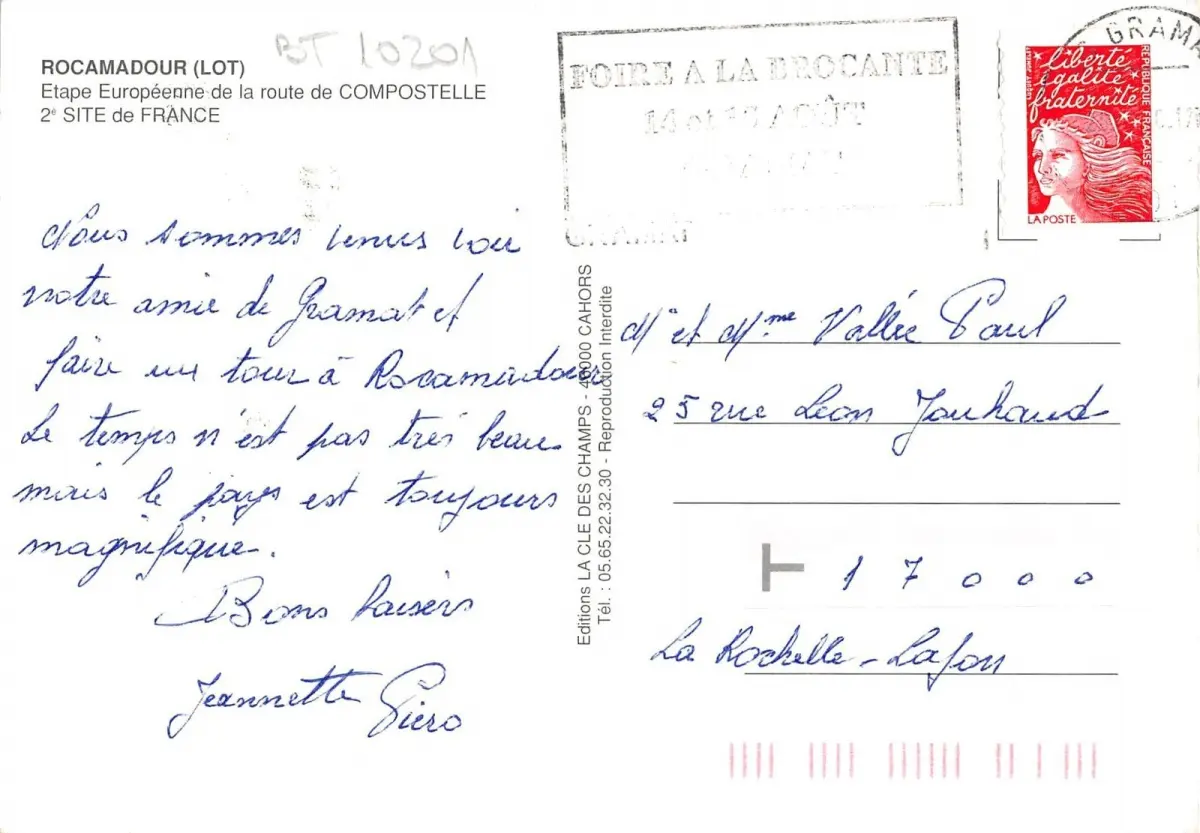 BT 10201
ROCAMADOUR (LOT)
Etape Européenne de la route de COMPOSTELLE
2e SITE de FRANCE
FOIRE A LA BROCANTE
14 et AOÛT
GRAMA
liberté
égalité
fraternité
RÉPUBLIQUE FRANÇAISE
LA POSTE
Nous sommes venus voir
notre amie de Gramat et
faire un tour à Rocamadour
Le temps n'est pas très beau
mais le pays est toujours
magnifique.
Bons baisers
Jeannette Piero
Editions LA CLE DES CHAMPS - 46000 CAHORS
Tél. : 05.65.22.32.30 - Reproduction Interdite
Mr et Mme Vallée Paul
25 rue Léon Jouhaud
T 17000
La Rochelle-Lafon